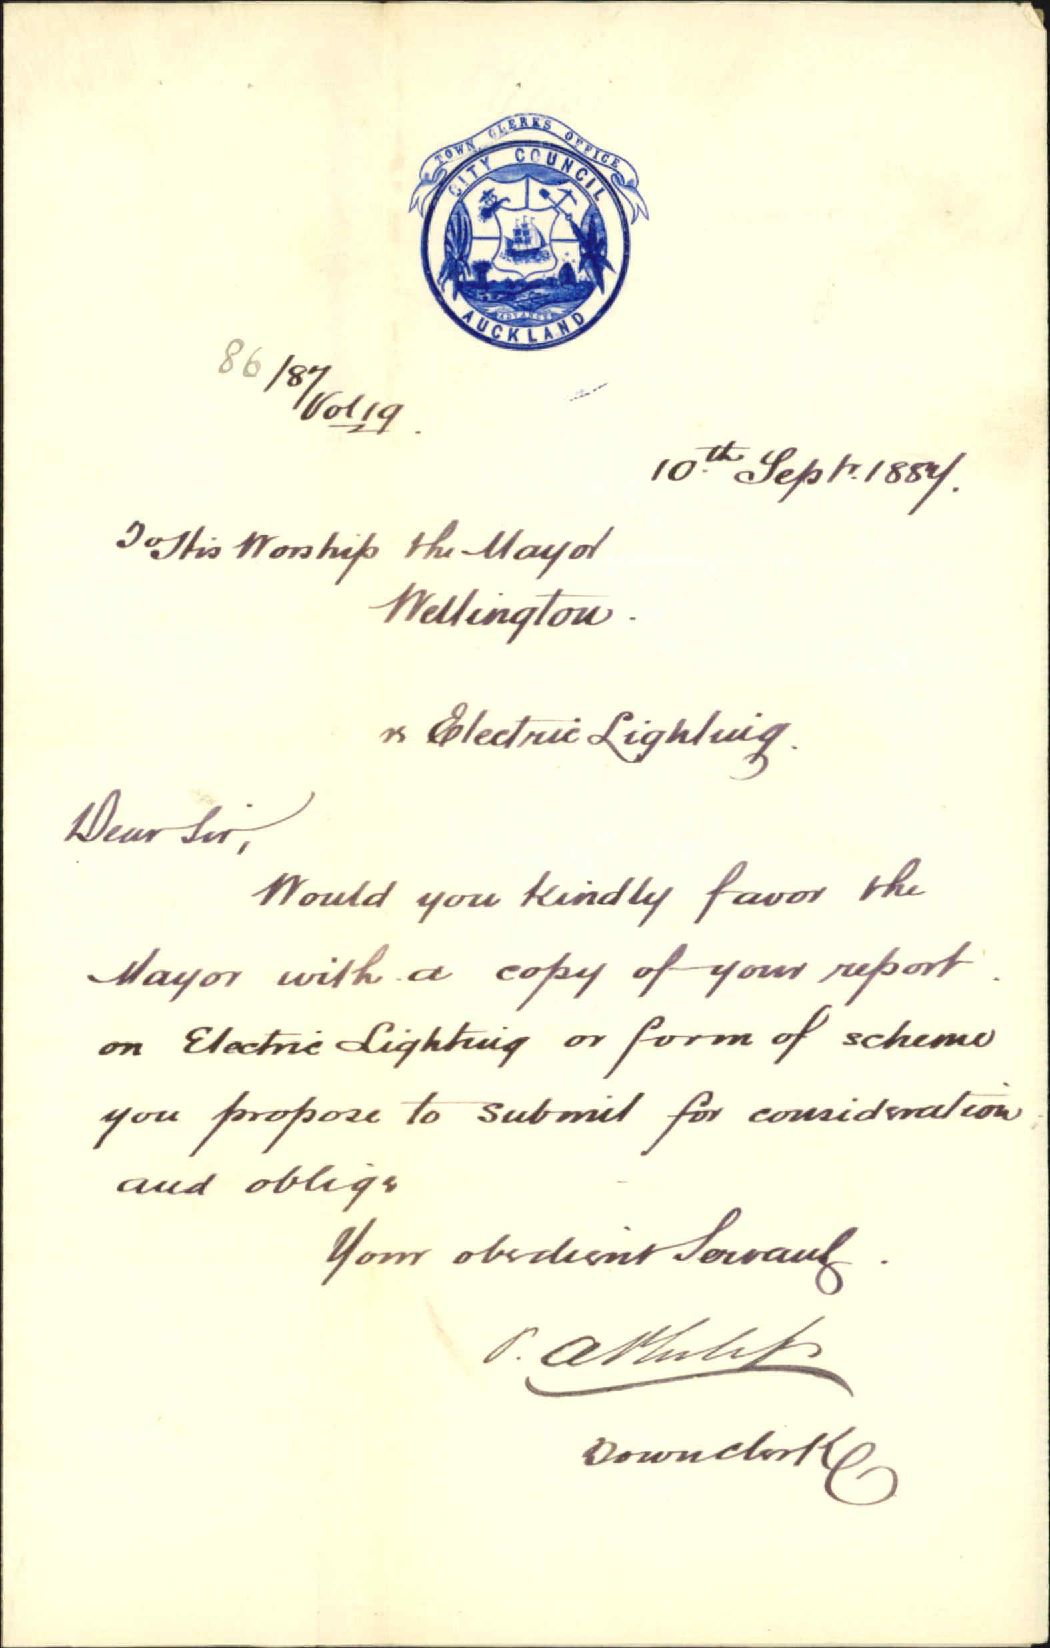 TOWN CLERKS OFFICE
CITY COUNCIL
AUCKLAND
86/87
Vol 19.
10th Sept. 1887.
To His Worship the Mayor
Wellington.
re Electric Lighting.
Dear Sir,
Would you kindly favor the
Mayor with a copy of your report
on Electric Lighting or form of scheme
you propose to submit for consideration
and oblige
Your obedient Servant.
P. A. Philips
Town Clerk